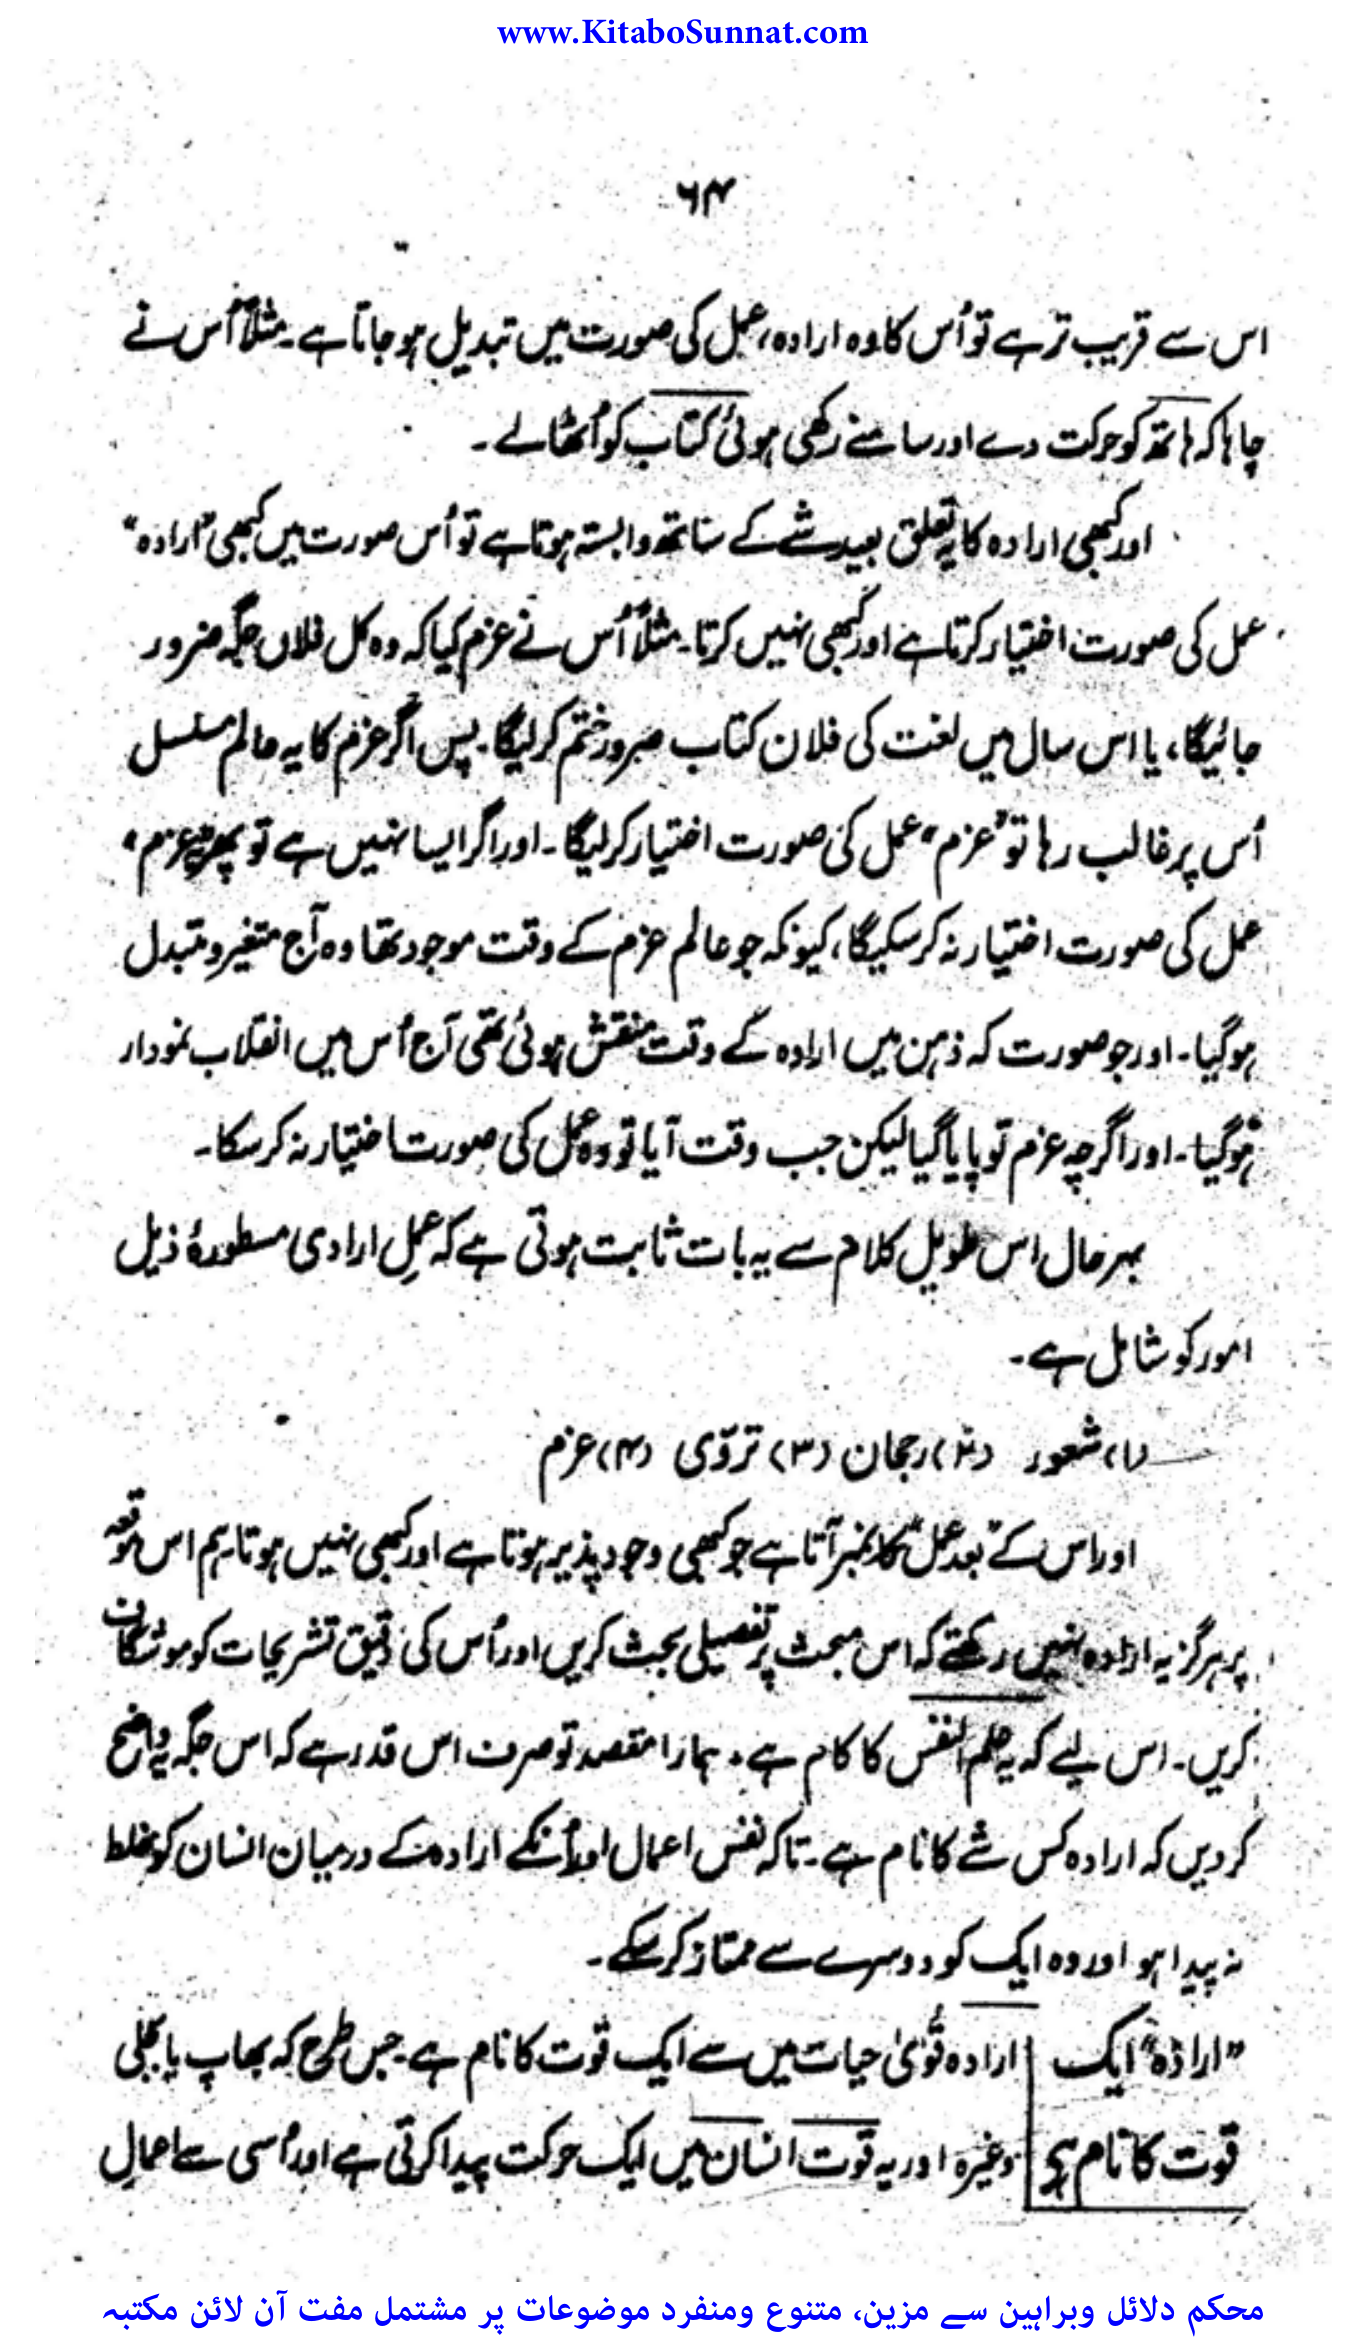 www.KitaboSunnat.com
۶۴
اس سے قریب تر ہے تو اُس کا وہ ارادہ، عمل کی صورت میں تبدیل ہو جاتا ہے۔ مثلاً اُس نے
چاہا کہ ہاتھ کو حرکت دے اور سامنے رکھی ہوئی کتاب کو اُٹھا لے۔
اور کبھی ارادہ کا یہ تعلق بعید شے کے ساتھ وابستہ ہوتا ہے تو اُس صورت میں کبھی "ارادہ"
عمل کی صورت اختیار کرتا ہے اور کبھی نہیں کرتا۔ مثلاً اُس نے عزم کیا کہ وہ کل فلاں جگہ ضرور
جائیگا، یا اس سال میں لغت کی فلان کتاب ضرور ختم کرلیگا۔ پس اگر عزم کا یہ عالم مسلسل
اُس پر غالب رہا تو "عزم" عمل کی صورت اختیار کرلیگا۔ اور اگر ایسا نہیں ہے تو پھر یہ "عزم"
عمل کی صورت اختیار نہ کرسکیگا، کیونکہ جو عالم عزم کے وقت موجود تھا وہ آج متغیر و متبدل
ہوگیا۔ اور جو صورت کہ ذہن میں ارادہ کے وقت منقش ہوئی تھی آج اُس میں انقلاب نمودار
ہوگیا۔ اور اگرچہ عزم تو پایا گیا لیکن جب وقت آیا تو وہ عمل کی صورت اختیار نہ کرسکا۔
بہرحال اس طویل کلام سے یہ بات ثابت ہوتی ہے کہ عملِ ارادی مسطورۂ ذیل
امور کو شامل ہے۔
(۱) شعور (۲) رجحان (۳) تروّی (۴) عزم
اور اس کے بعد "عمل" کا نمبر آتا ہے جو کبھی وجود پذیر ہوتا ہے اور کبھی نہیں ہوتا ہم اس موقعہ
پر ہرگز یہ ارادہ نہیں رکھتے کہ اس مبحث پر تفصیلی بحث کریں اور اُس کی دقیق تشریحات کو موشگاف
کریں۔ اس لیے کہ یہ علم النفس کا کام ہے۔ ہمارا مقصد تو صرف اس قدر ہے کہ اس جگہ یہ واضح
کردیں کہ ارادہ کس شے کا نام ہے۔ تاکہ نفس اعمال اور اُنکے ارادہ کے درمیان انسان کو خلط
نہ پیدا ہو اور وہ ایک کو دوسرے سے ممتاز کرسکے۔
"ارادہ" ایک
قوت کا نام ہے
ارادہ قُویٰ حیات میں سے ایک قوت کا نام ہے۔ جس طرح کہ بھاپ یا بجلی
وغیرہ اور یہ قوت انسان میں ایک حرکت پیدا کرتی ہے اور اُسی سے اعمالِ
محکم دلائل وبراہین سے مزین، متنوع ومنفرد موضوعات پر مشتمل مفت آن لائن مکتبہ